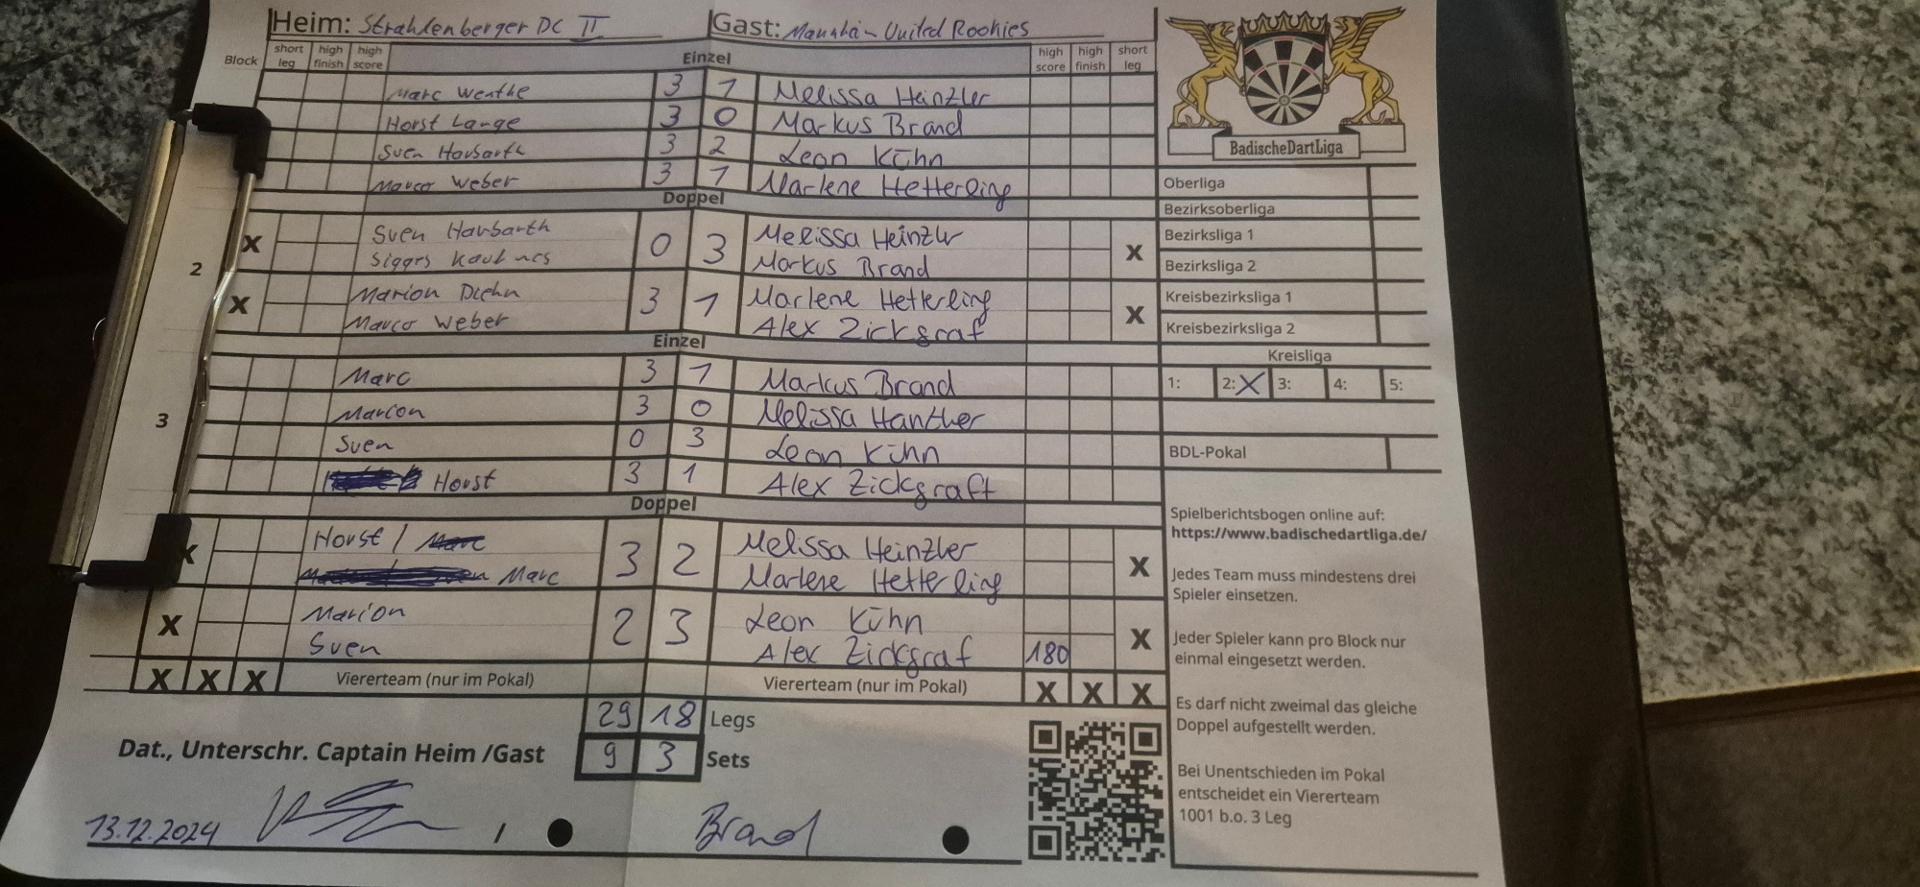 Heim: Strahlenberger DC II Gast: Mannhein United Rookies
Block short leg high finish high score Einzel high score high finish short leg
Marc Wenthe 3 1 Melissa Heinzler
Horst Lange 3 0 Markus Brand
Sven 3 2 Leon Kühn
Marco Weber 3 1 Marlene Hetterling
Doppel
X Sven 0 3 Melissa Heinzler X
2 Markus Brand
X Marion Diehn 3 1 Marlene Hetterling X
Marco Weber Alex Zicksgraf
Einzel
Marc 3 1 Markus Brand
Marion 3 0 Melissa
3 Sven 0 3 Leon Kühn
Horst 3 1 Alex Zickgraft
Doppel
X Horst / Marc 3 2 Melissa Heinzler X
Marc Marlene Hetterling
X Marion 2 3 Leon Kühn X
Sven Alex Zickgraf 180
X X X Viererteam (nur im Pokal) Viererteam (nur im Pokal) X X X
29 18 Legs
Dat., Unterschr. Captain Heim /Gast 9 3 Sets
13.12.2024 / Brand
BadischeDartLiga
Oberliga
Bezirksoberliga
Bezirksliga 1
Bezirksliga 2
Kreisbezirksliga 1
Kreisbezirksliga 2
Kreisliga
1: 2: X 3: 4: 5:
BDL-Pokal
Spielberichtsbogen online auf:
https://www.badischedartliga.de/
Jedes Team muss mindestens drei
Spieler einsetzen.
Jeder Spieler kann pro Block nur
einmal eingesetzt werden.
Es darf nicht zweimal das gleiche
Doppel aufgestellt werden.
Bei Unentschieden im Pokal
entscheidet ein Viererteam
1001 b.o. 3 Leg